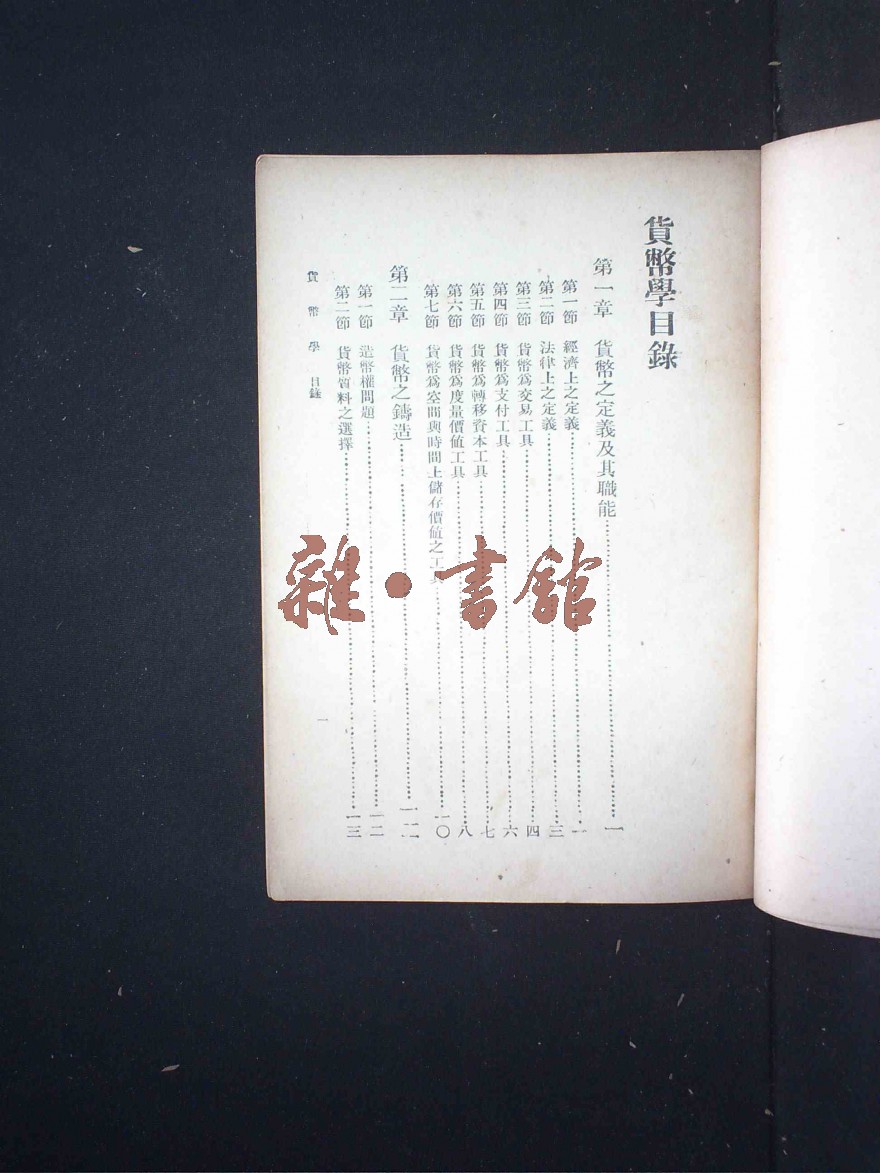 貨幣學目錄
第一章 貨幣之定義及其職能……一
第一節 經濟上之定義……一
第二節 法律上之定義……三
第三節 貨幣爲交易工具……四
第四節 貨幣爲支付工具……六
第五節 貨幣爲轉移資本工具……七
第六節 貨幣爲度量價値工具……八
第七節 貨幣爲空間與時間上儲存價値之工具……一〇
第二章 貨幣之鑄造……一二
第一節 造幣權問題……一二
第二節 貨幣質料之選擇……一三
貨幣學 目錄
一
雜·書館